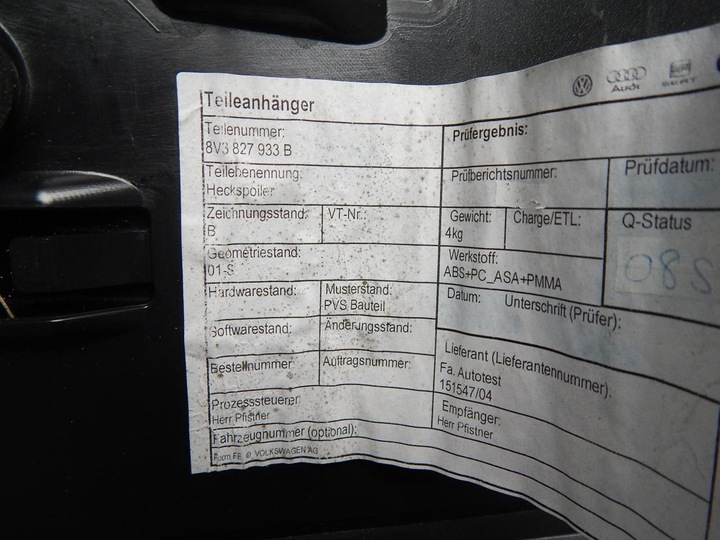 Audi
SEAT
Teileanhänger
Teilenummer:
8V3 827 933 B
Prüfergebnis:
Teilebenennung:
Heckspoiler
Prüfberichtsnummer:
Prüfdatum:
Zeichnungsstand:
B
VT-Nr.:
Gewicht:
4kg
Charge/ETL:
Q-Status
08S
Geometriestand:
01-S
Werkstoff:
ABS+PC_ASA+PMMA
Hardwarestand:
Musterstand:
PVS Bauteil
Datum: Unterschrift (Prüfer):
Softwarestand:
Änderungsstand:
Bestellnummer:
Auftragsnummer:
Lieferant (Lieferantennummer).
Fa. Autotest
151547/04
Prozesssteuerer
Herr Pfistner
Empfänger:
Herr Pfistner
Fahrzeugnummer (optional):
Form FE © VOLKSWAGEN AG